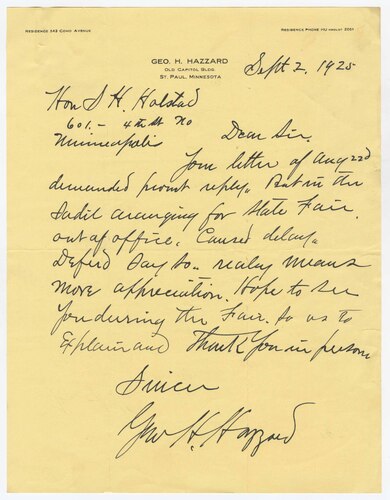 RESIDENCE 343 COMO AVENUE
RESIDENCE PHONE
GEO. H. HAZZARD
OLD CAPITOL BLDG
ST. PAUL, MINNESOTA
Sept 2, 1925
Hon S H. Holstad
601.- 4th St No
Minneapolis
Dear Sir.
Your letter of Aug 22d
demanded promt reply. But in the
arranging for State Fair.
out of office. Caused delay.
Deferd Say So.. realey means
more appreciation. Hope to see
You during the Fair. So as to
Explain and Thank You in person
Sincer
Geo H. Hazzard